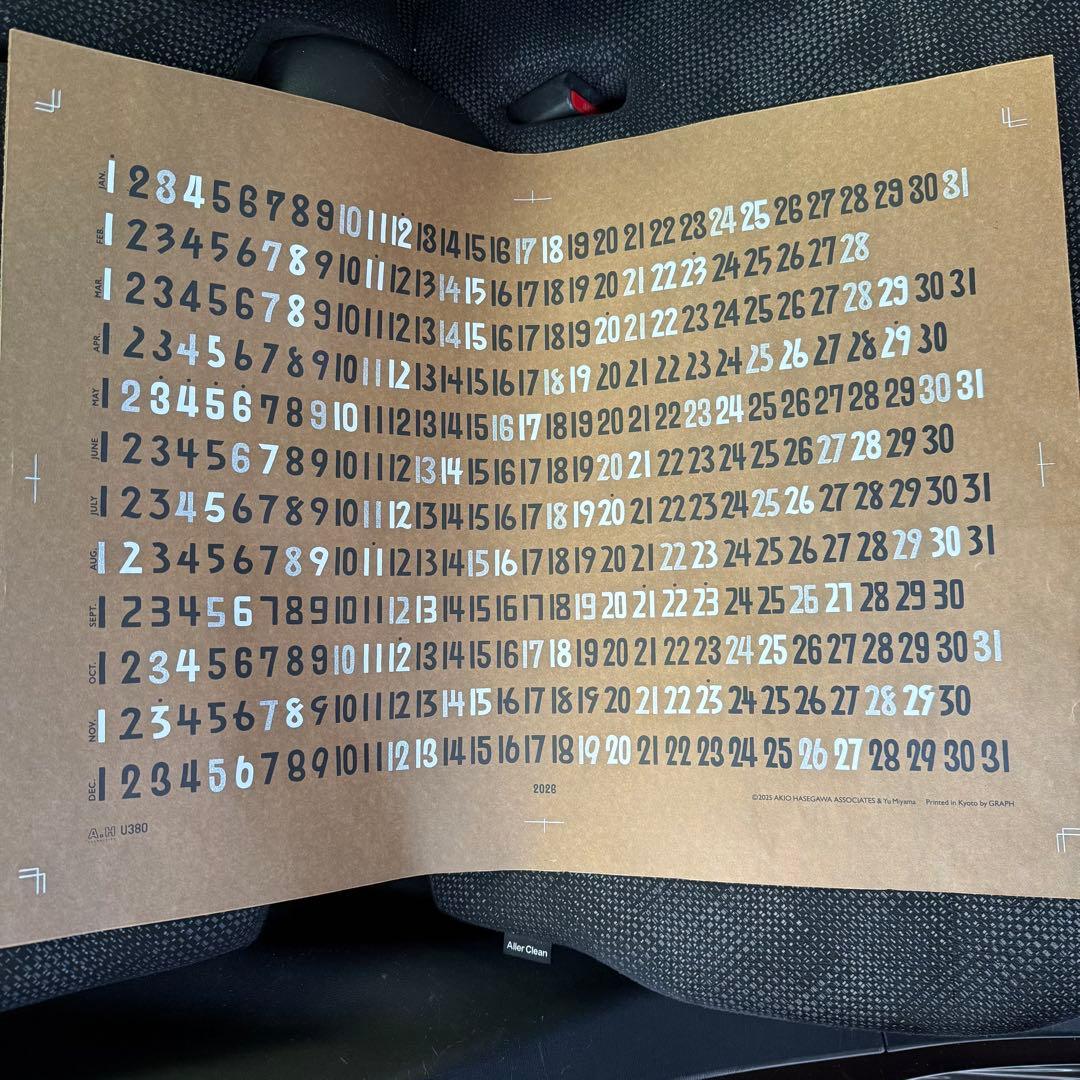 JAN. 1 2 3 4 5 6 7 8 9 10 11 12 13 14 15 16 17 18 19 20 21 22 23 24 25 26 27 28 29 30 31
FEB. 1 2 3 4 5 6 7 8 9 10 11 12 13 14 15 16 17 18 19 20 21 22 23 24 25 26 27 28
MAR. 1 2 3 4 5 6 7 8 9 10 11 12 13 14 15 16 17 18 19 20 21 22 23 24 25 26 27 28 29 30 31
APR. 1 2 3 4 5 6 7 8 9 10 11 12 13 14 15 16 17 18 19 20 21 22 23 24 25 26 27 28 29 30
MAY 1 2 3 4 5 6 7 8 9 10 11 12 13 14 15 16 17 18 19 20 21 22 23 24 25 26 27 28 29 30 31
JUNE 1 2 3 4 5 6 7 8 9 10 11 12 13 14 15 16 17 18 19 20 21 22 23 24 25 26 27 28 29 30
JULY 1 2 3 4 5 6 7 8 9 10 11 12 13 14 15 16 17 18 19 20 21 22 23 24 25 26 27 28 29 30 31
AUG. 1 2 3 4 5 6 7 8 9 10 11 12 13 14 15 16 17 18 19 20 21 22 23 24 25 26 27 28 29 30 31
SEPT. 1 2 3 4 5 6 7 8 9 10 11 12 13 14 15 16 17 18 19 20 21 22 23 24 25 26 27 28 29 30
OCT. 1 2 3 4 5 6 7 8 9 10 11 12 13 14 15 16 17 18 19 20 21 22 23 24 25 26 27 28 29 30 31
NOV. 1 2 3 4 5 6 7 8 9 10 11 12 13 14 15 16 17 18 19 20 21 22 23 24 25 26 27 28 29 30
DEC. 1 2 3 4 5 6 7 8 9 10 11 12 13 14 15 16 17 18 19 20 21 22 23 24 25 26 27 28 29 30 31
2026
©2025 AKIO HASEGAWA ASSOCIATES & Yu Miyama Printed in Kyoto by GRAPH
A.H U380
AllerClean